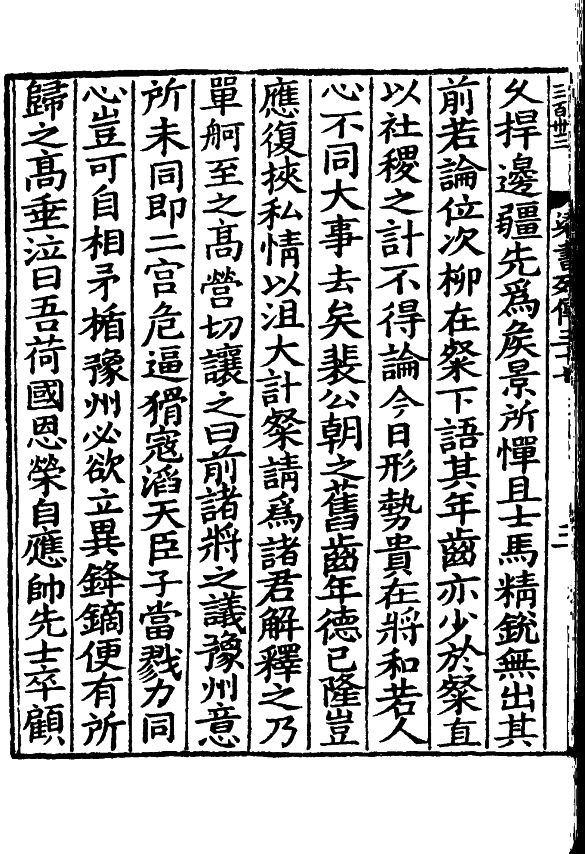 三百卅二
梁書列傳三十七
二
久捍邊疆先爲矦景所憚且士馬精銳無出其
前若論位次柳在粲下語其年齒亦少於粲直
以社稷之計不得論今日形勢貴在將和若人
心不同大事去矣裴公朝之舊齒年德已隆豈
應復挾私情以沮大計粲請爲諸君解釋之乃
單舸至之高營切讓之曰前諸將之議豫州意
所未同即二宮危逼猾寇滔天臣子當戮力同
心豈可自相矛楯豫州必欲立異鋒鏑便有所
歸之高垂泣曰吾荷國恩榮自應帥先士卒顧